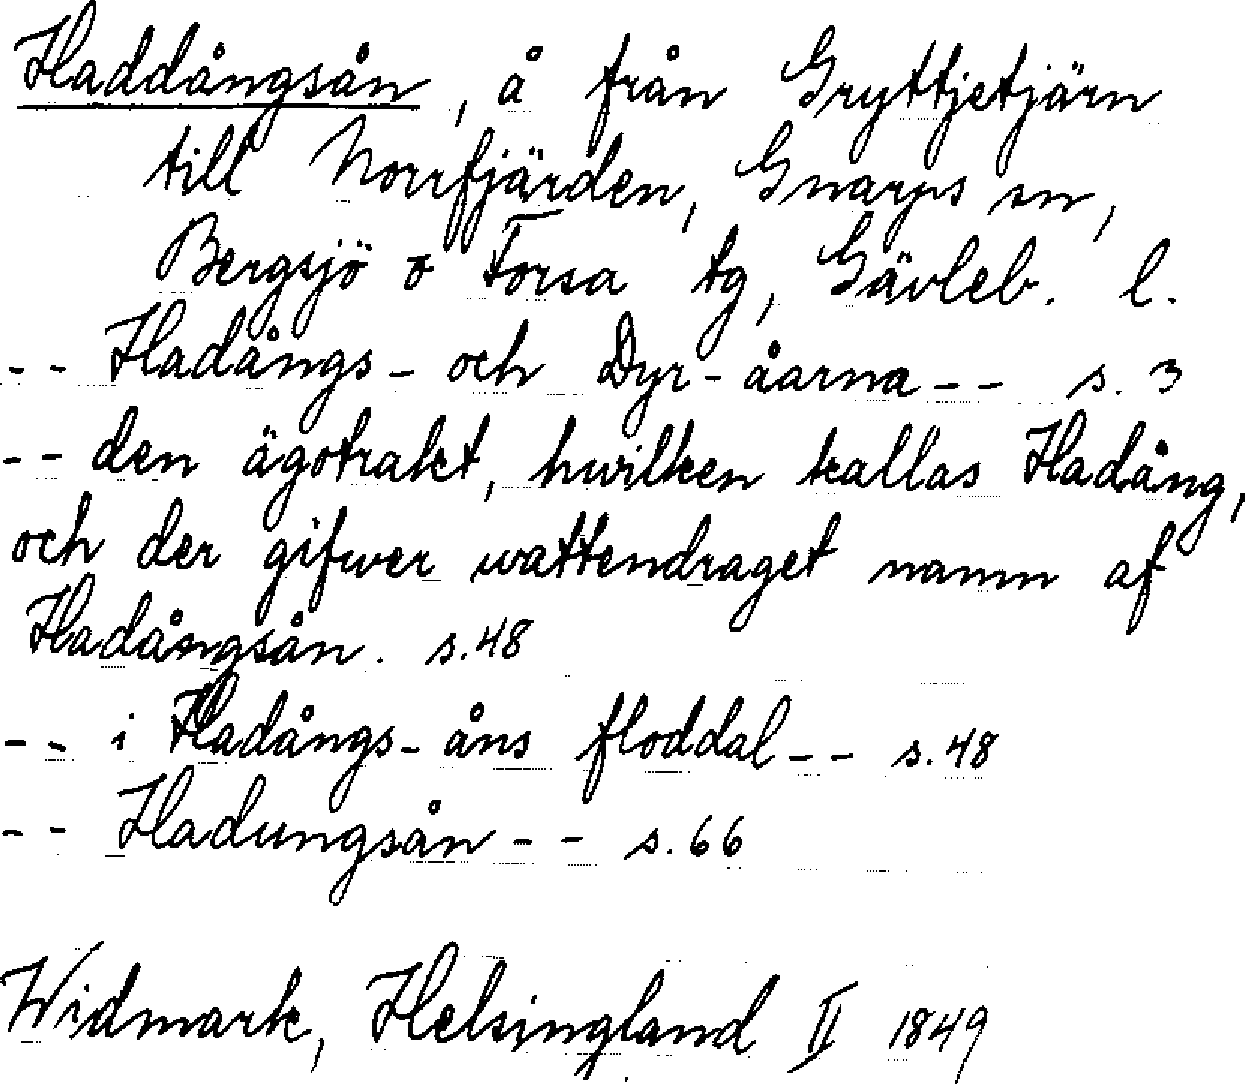 Haddångsån, å från Gryttjetjärn
till Norrfjärden, Gnarps sn,
Bergsjö o Forsa tg, Gävleb. l.
-- Hadångs- och Dyr-åarna -- s. 3
-- den ägotrakt, hwilken kallas Hadång,
och der gifwer wattendraget namn af
Hadångsån. s. 48
-- i Hadångs-åns floddal -- s. 48
-- Hadungsån -- s. 66
Widmark, Helsingland II 1849